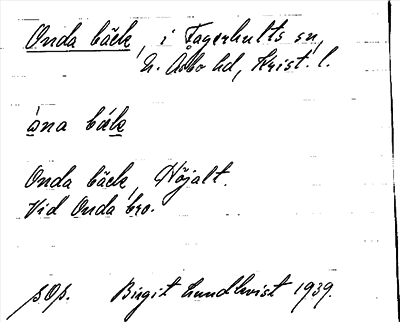 Onda bäck, i Fagerhults sn,
N. Åsbo hd, Krist. l.
åna bäk
Onda bäck, Höjalt.
Vid Onda bro.
sOp. Birgit Lundkvist 1939.